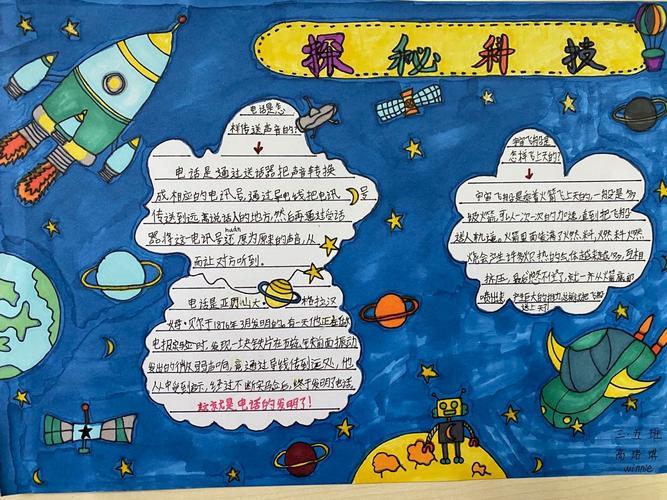 探秘科技
电话是怎
样传送声音的?
电话是通过送话器把声音转换
成相应的电讯号,通过导电线把电讯号
传送到远离说话人的地方,然后再通过合话
huán
器将这电讯号还原为原来的声音,从
而让对方听到。
电话是亚历山大·格拉汉
姆·贝尔于1876年3月发明的。有一天他正在做
电报实验时,发现一块铁片在磁铁前面振动
发出的微弱声响,竟通过导线传到远处,他
从中受到启示,经过不断实验后,终于发明了电话。
这就是电话的发明了!
宇宙飞船是
怎样飞上天的?
宇宙飞船是靠着火箭飞上天的,一般是多
级火箭,可以一次一次的加速,直到把飞船
送入轨道。火箭里面装满了燃料,燃料燃
烧会产生许多炽热的气体
挤压,
喷出去
送上天了!
三五班
winnie